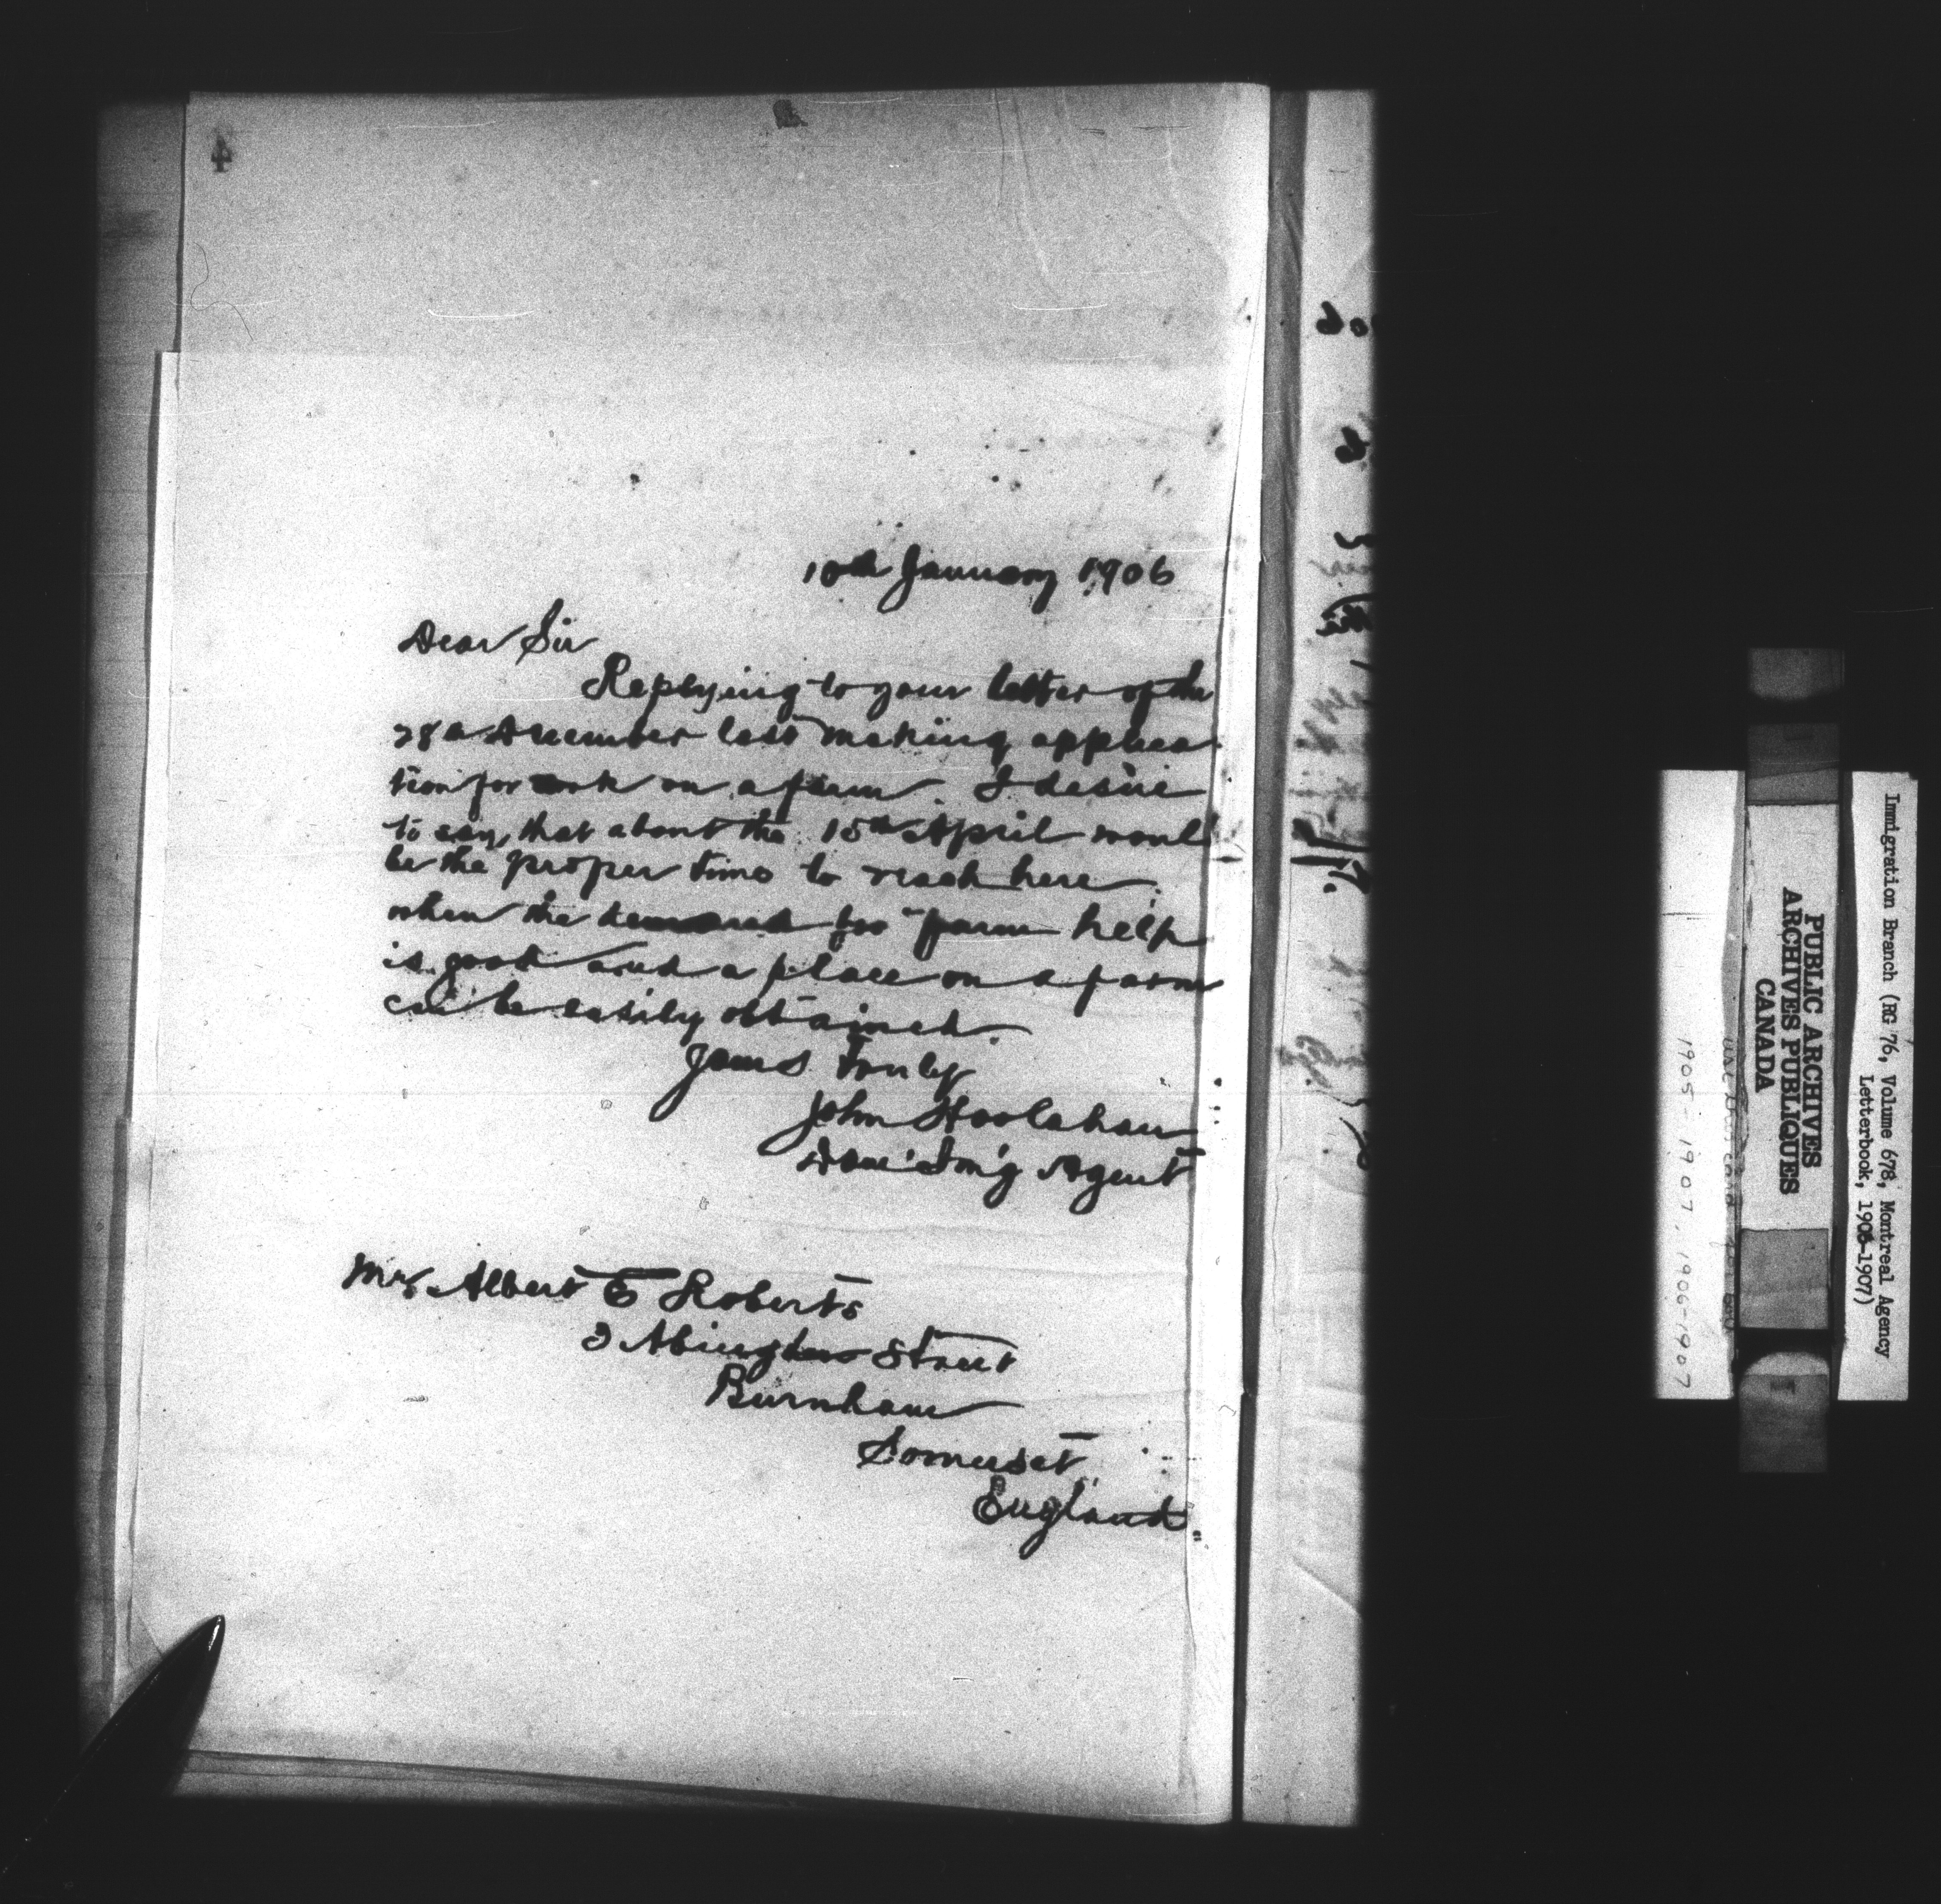 4
10th January 1906
Dear Sir
Replying to your letter of the
28th December last making applica
tion for work on a farm. I desire
to say, that about the 15th April would
be the proper time to reach here.
when the demand for farm help
is good and a place on a farm
can be easily obtained.
Yours Truly
John Hoolahan
Dom' Im'g Agent
Mr. Albert E Roberts
2 Abingdon Street
Burnham
Somerset
England.
Immigration Branch (RG 76, Volume 678, Montreal Agency
Letterbook, 1906-1907)
PUBLIC ARCHIVES
ARCHIVES PUBLIQUES
CANADA
1905-1907, 1906-1907